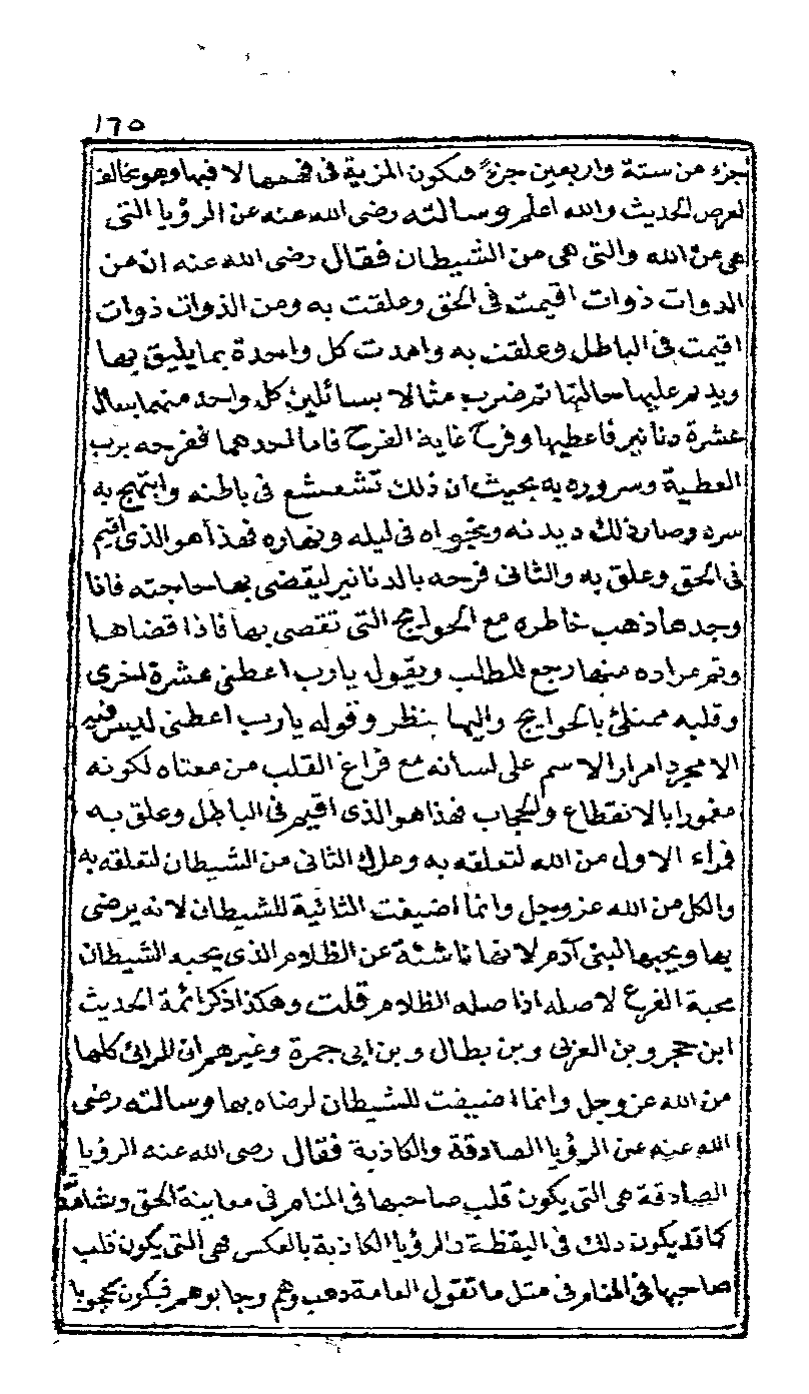 ١٦٥
جزء من ستة واربعين جزءً فتكون المزية فى فهمها لا فيها وهو مخالف
لغرض الحديث والله اعلم وسالته رضى الله عنه عن الرؤيا التى
هى من الله والتى هى من الشيطان فقال رضى الله عنه ان من
الذوات ذوات اقيمت فى الحق وعلقت به ومن الذوات ذوات
اقيمت فى الباطل وعلقت به وامدت كل واحدة بما يليق بها
ويدوم عليها حالتها ثم ضرب مثالا بسائلين كل واحد منهما يسال
عشرة دنانير فاعطيها وفرح غاية الفرح فاما احدهما ففرحه برب
العطية وسروره به بحيث ان ذلك تشعشع فى باطنه وابتهج به
سره وصار ذلك ديدنه ونجواه فى ليله ونهاره فهذا هو الذى اقيم
فى الحق وعلق به والثانى فرحه بالدنانير ليقضى بها حاجته فاذا
وجدها ذهب خاطره مع الحوايج التى تقضى بها فاذا قضاها
وتم مراده منها رجع للطلب ويقول يارب اعطنى عشرة اخرى
وقلبه ممتلئ بالحوايج واليها ينظر وقوله يارب اعطنى ليس فيه
الا مجرد امرار الاسم على لسانه مع فراغ القلب من معناه لكونه
مغمورا بالانقطاع والحجاب فهذا هو الذى اقيم فى الباطل وعلق به
فمراء الاول من الله لتعلقه به ومراء الثانى من الشيطان لتعلقه به
والكل من الله عز وجل وانما اضيفت الثانية للشيطان لانه يرضى
بها ويحبها لبنى آدم لانها ناشئة عن الظلام الذى يحبه الشيطان
محبة الفرع لاصله اذا صله الظلام قلت وهكذا ذكر ائمة الحديث
ابن حجر وبن العربى وبن بطال وبن ابى جمرة وغيرهم ان المرائى كلها
من الله عز وجل وانما اضيفت للشيطان لرضاه بها وسالته رضى
الله عنه عن الرؤيا الصادقة والكاذبة فقال رضى الله عنه الرؤيا
الصادقة هى التى يكون قلب صاحبها فى المنام فى معاينة الحق ومشاهدته
كما قد يكون ذلك فى اليقظة والرؤيا الكاذبة بالعكس هى التى يكون قلب
صاحبها فى المنام فى مثل ما تقول العامة ذهب وهم وجا بوهم فيكون محجوبا